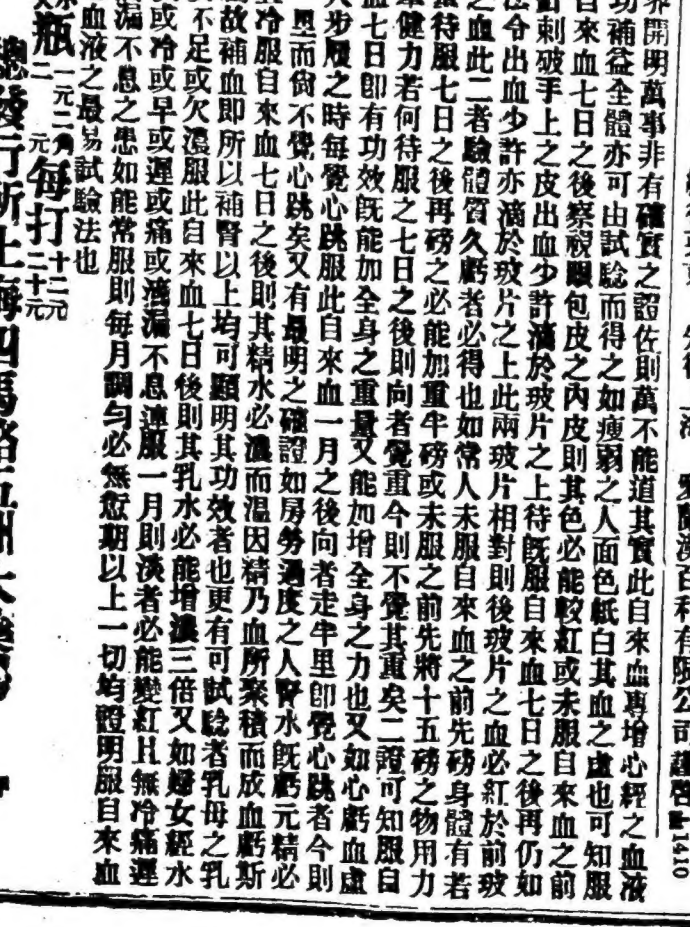 愛蘭漢百利有限公司謹啓
1410
界開明萬事非有確實之證佐則萬不能道其實此自來血專增心經之血液
功補益全體亦可由試驗而得之如瘦弱之人面色紙白其血之虛也可知服
自來血七日之後察視眼包皮之內皮則其色必能較紅或未服自來血之前
刺破手上之皮出血少許滴於玻片之上待既服自來血七日之後再仍如
法令出血少許亦滴於玻片之上此兩玻片相對則後玻片之血必紅於前玻
之血此二者驗體質久虧者必得也如常人未服自來血之前先磅身體有若
待服七日之後再磅之必能加重半磅或未服之前先將十五磅之物用力
健力若何待服之七日之後則向者覺重今則不覺其重矣二證可知服自
血七日卽有功效旣能加全身之重量又能加增全身之力也又如心虧血虛
步履之時每覺心跳服此自來血一月之後向者走半里卽覺心跳者今則
里而尙不覺心跳矣又有最明之確證如房勞過度之人腎水旣虧元精必
冷服自來血七日之後則其精水必濃而溫因精乃血所聚積而成血虧斯
故補血即所以補腎以上均可顯明其功效者也更有可試驗者乳母之乳
不足或欠濃服此自來血七日後則其乳水必能增濃三倍又如婦女經水
或冷或早或遲或痛或滴漏不息連服一月則淡者必能變紅且無冷痛遲
漏不息之患如能常服則每月調勻必無愆期以上一切均證明服自來血
血液之最易試驗法也
瓶 一元二角 二元 每打 十二元 二十元
總發行所上海四馬路五洲大藥房